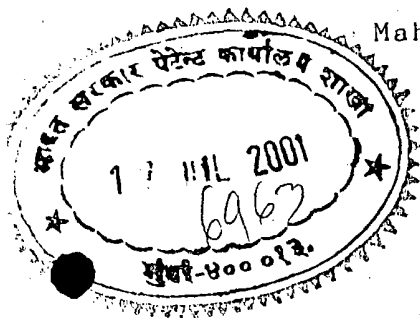 Mah
भारत सरकार पेटेन्ट कार्यालय शाखा
1 JUL 2001
6963
मुंबई-४०० ०१३.